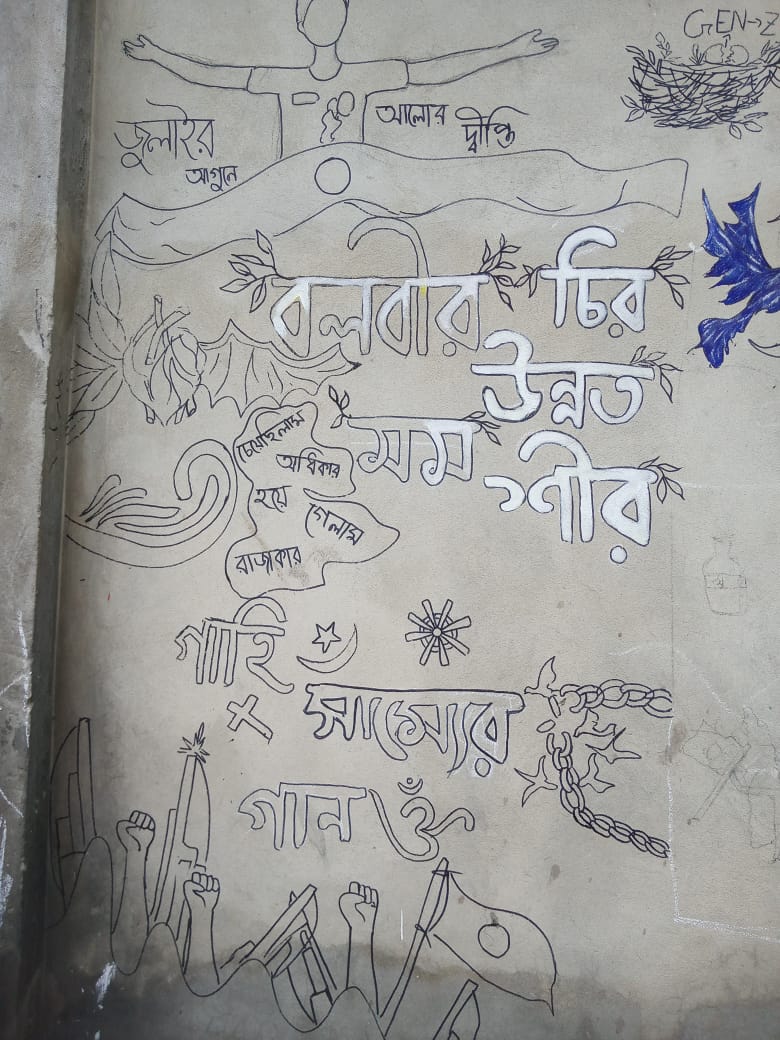 GEN→Z
জুলাইর আগুনে
আলোর দ্বীপ্তি
বলবীর চির
উন্নত
মম
শীর
চেয়েছিলাম
অধিকার
হয়ে গেলাম
রাজাকার
গাহি
সাম্যের
গান ওঁ